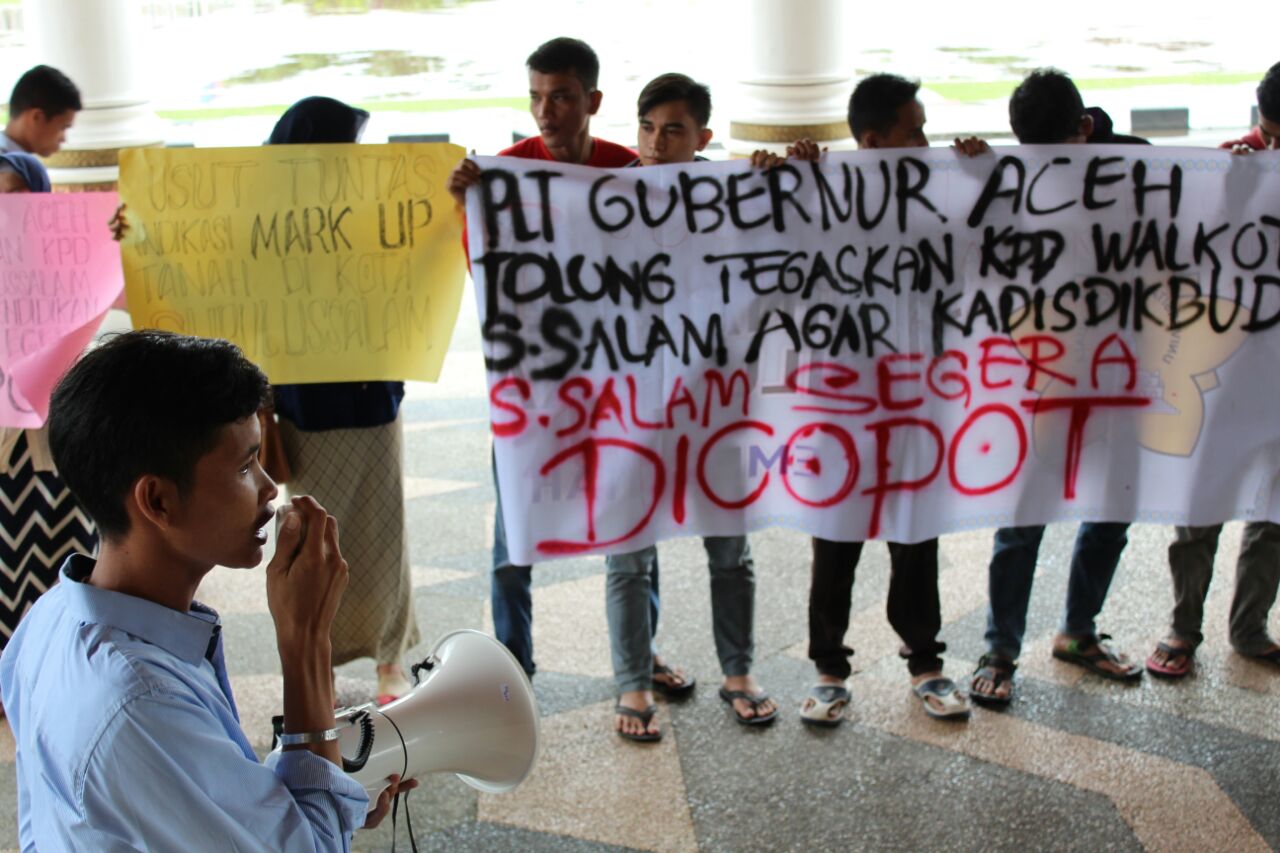 ACEH
KPD
SSALAM
NDIDIKAN
USUT TUNTAS
INDIKASI MARK UP
TANAH DI KOTA
SUBULUSSALAM
PLT GUBERNUR ACEH
TOLONG TEGASKAN KPD WALKOT
S.SALAM AGAR KADISDIKBUD
S.SALAM SEGERA
DICOPOT